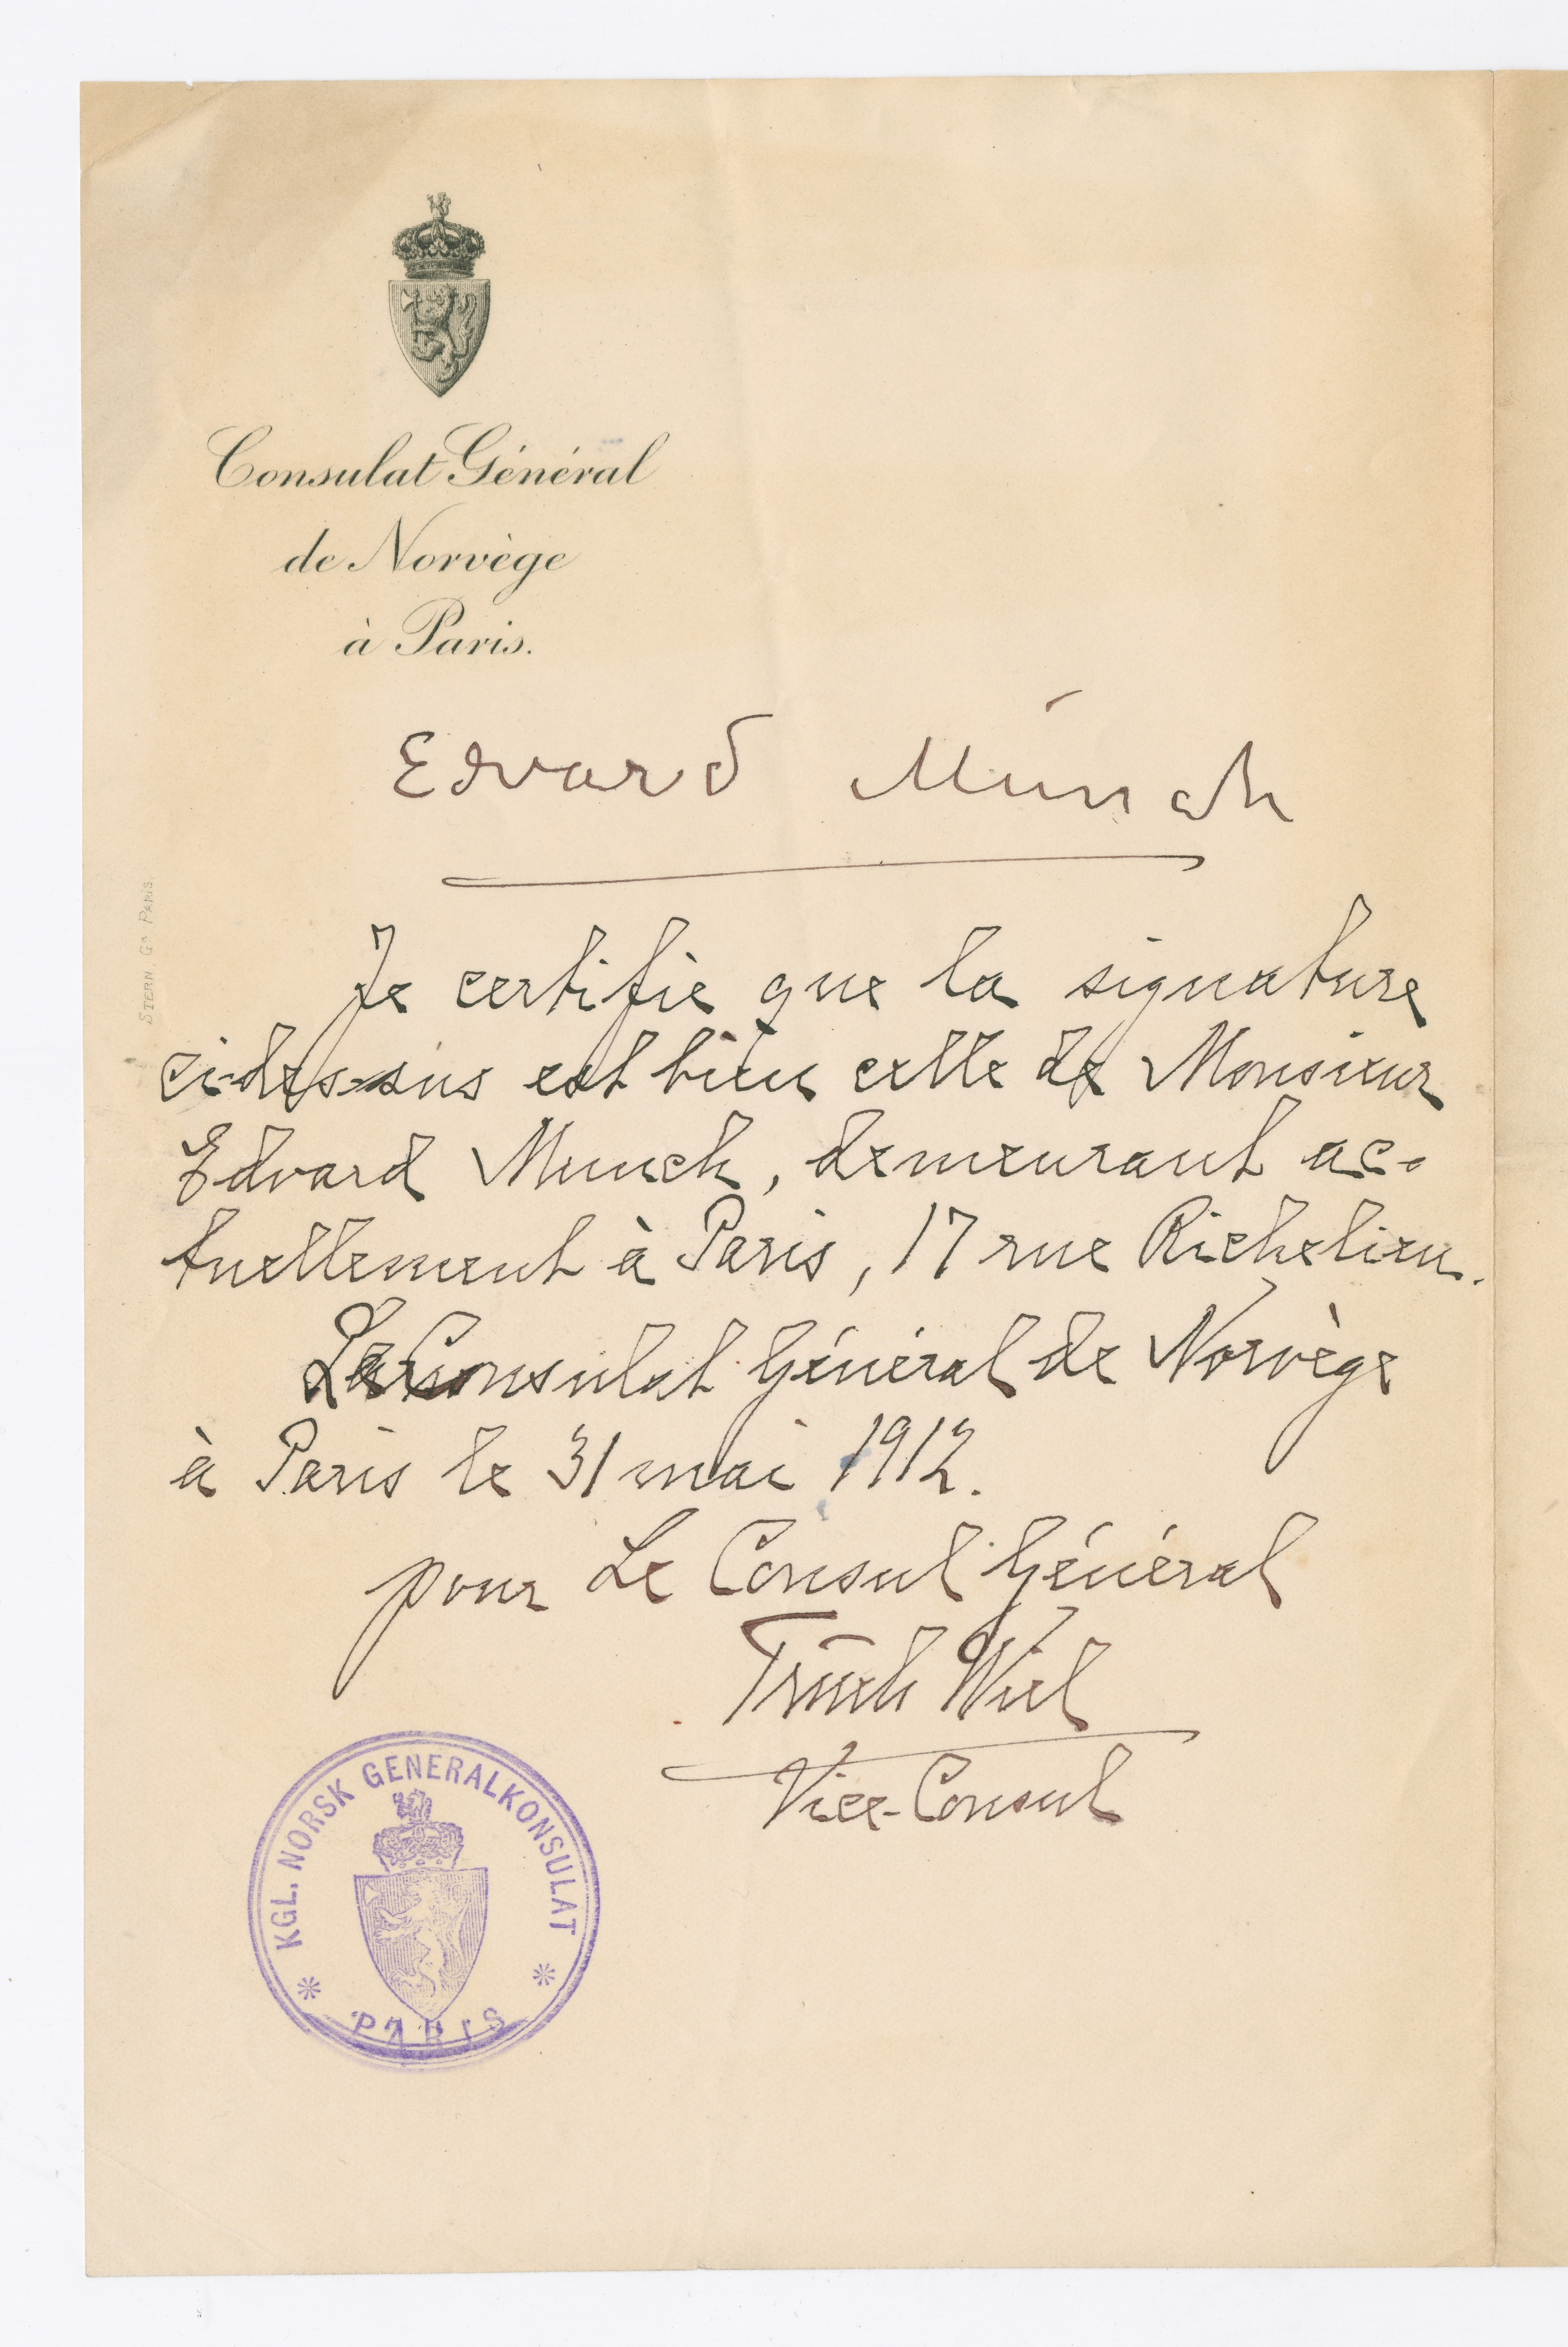 Consulat Général
de Norvège
à Paris.
Edvard Munch
Je certifie que la signature
ci-dessus est bien celle de Monsieur
Edvard Munch, demeurant ac-
tuellement à Paris, 17 rue Richelieu.
Le Consulat Général de Norvège
à Paris le 31 mai 1912.
pour Le Consul Général
Wiel
Vice-Consul
KGL. NORSK GENERALKONSULAT
PARIS
STERN. Gr PARIS.